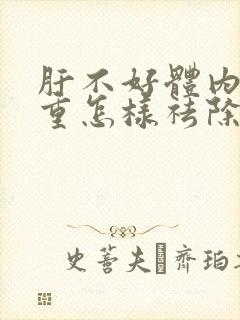 肝不好體內
重怎樣祛除
史蒈夫 齊珀